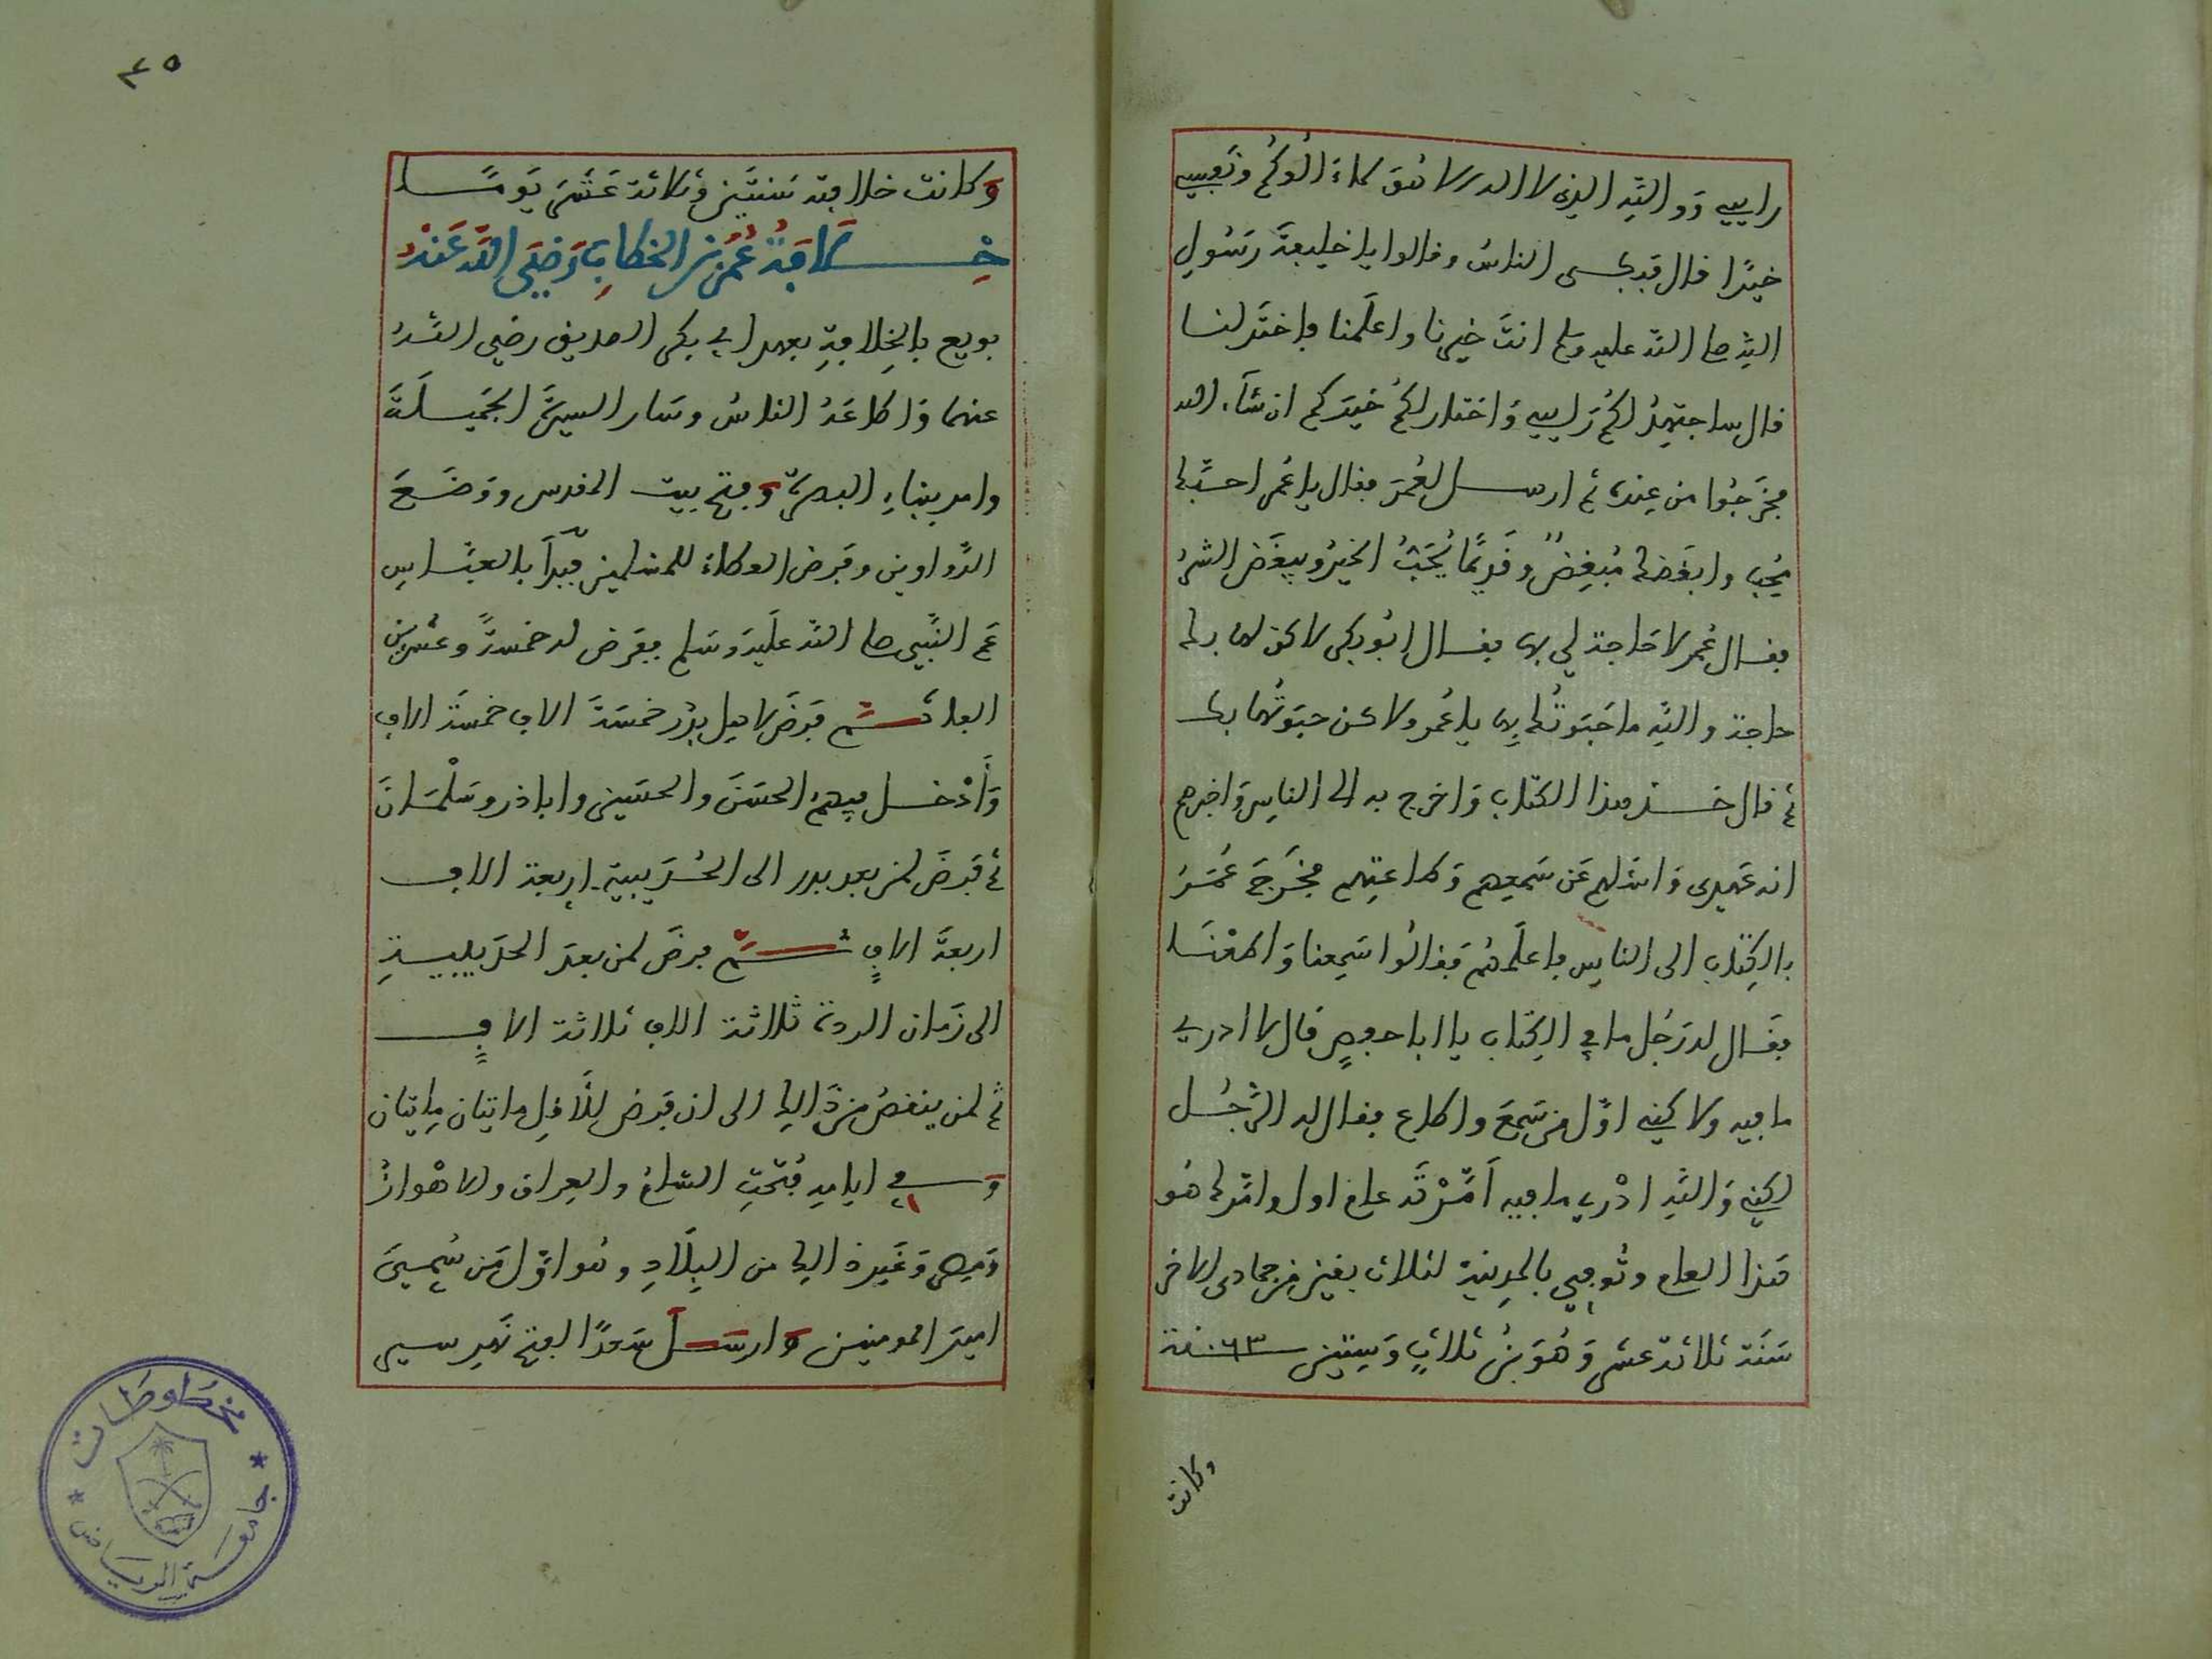 راييي ووالله الذي لا اله الا هو لاالوكم ونفسي
خيرًا قال فبكى الناس وقالوا يا خليفة رسول
الله صلى الله عليه وسلم انت خيرنا واعلمنا فاختر لنا
قال ساجتهد لكم راييي واختار لكم خيركم ان شاء الله
فخرجوا من عنده ثم ارسل لعمر فقال يا عمر احبك
محب وابغضك مبغض وقديمًا يحب الخير ويبغض الشر
فقال عمر لا حاجة لي بها فقال ابو بكر لاكن لها بك
حاجة والله ما حبوتك بها يا عمر ولاكن حبوتها بك
ثم قال خذ هذا الكتاب واخرج به الى الناس واخبرهم
انه عهدي واسئلهم عن سمعهم وطاعتهم فخرج عمر
بالكتاب الى الناس فاعلمهم فقالوا سمعنا واطعنا
فقال له رجل ما في الكتاب يا ابا حفص قال لا ادري
ما فيه ولاكني اول من سمع واطاع فقال له الرجل
لكني والله ادري ما فيه امرته عام اول وامرك هو
هذا العام وتوفي بالمدينة لثلاث بقين من جمادى الاخر
سنة ثلاثة عشر وهو بن ثلاث وستين ٦٣ سنة
وكانت
٤٥
وكانت خلافته سنتين وثلاثة عشر يومًا
خلافة عمر بن الخطاب رضي الله عنه
بويع بالخلافة بعهد ابي بكر الصديق رضي الله
عنهما واطاعه الناس وسار السيرة الجميلة
وامر ببناء البصرة وفتح بيت المقدس ووضع
الدواوين وفرض العطاء للمسلمين فبدأ بالعباس
عم النبي صلى الله عليه وسلم ففرض له خمسة وعشرين
الفا ثم فرض لاهل بدر خمسة الاف خمسة الاف
وأدخل فيهم الحسن والحسين واباذر وسلمان
ثم فرض لمن بعد بدر الى الحديبية اربعة الاف
اربعة الاف ثم فرض لمن بعد الحديبيية
الى زمان الردة ثلاثة الاف ثلاثة الاف
ثم لمن ينقص من ذالك الى ان فرض للأقل ماتيان ماتيان
وفي ايامه فتحت الشام والعراق والاهواز
ومصر وغير ذالك من البلاد وهو اول من سمي
امير المومنين وارسل سعدًا لفتح نهر سير
مخطوطات
جامعة الرياض